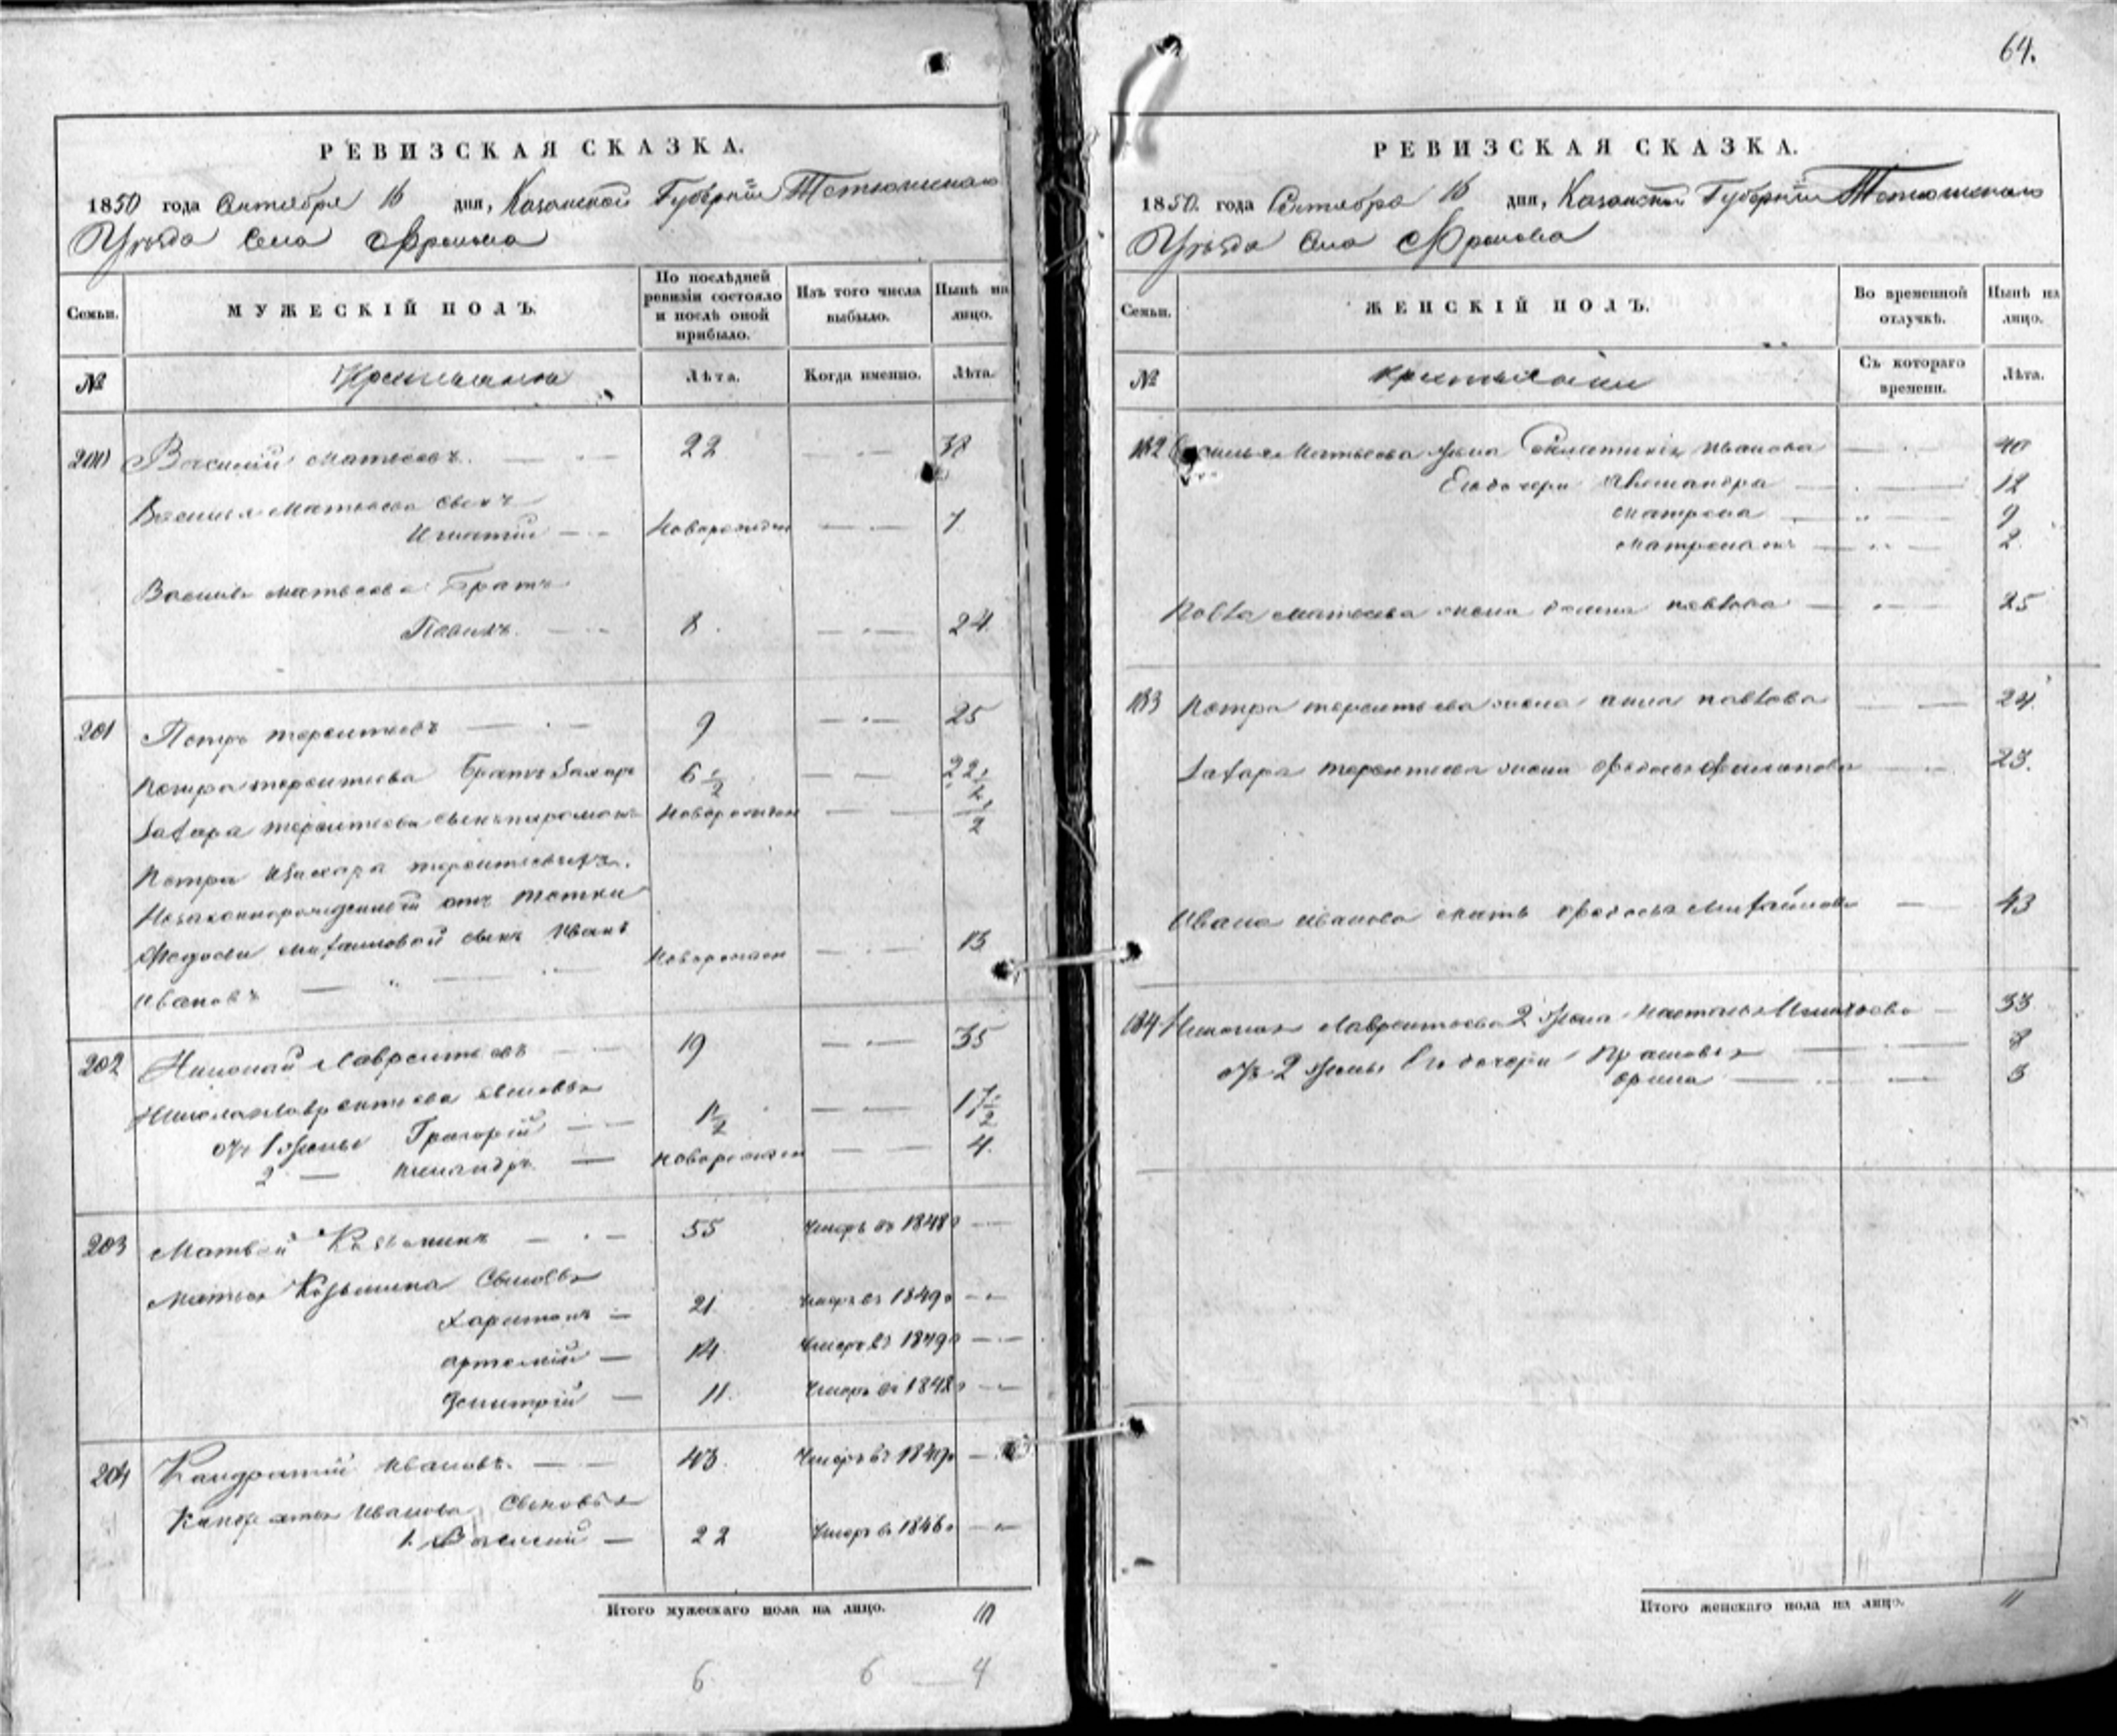 РЕВИЗСКАЯ СКАЗКА.
1850 года Сентября 16 дня, Казанской Губернiи Тетюшскаго
Уѣзда Села
Семьи.
МУЖЕСКІЙ ПОЛЪ.
По послѣдней ревизіи состояло и послѣ оной прибыло.
Изъ того числа выбыло.
Нынѣ на лицо.
№
Крестьяне
Лѣта.
Когда именно.
Лѣта.
200 Василiй Матвеевъ 22 38
Василья Матвеева сынъ
Игнатiй Новорожден 7
Василья Матвеева Братъ
Павилъ 8 24
201 Петръ терентьевъ 9 25
Петра терентьева Братъ Захаръ 6 1/2 22 1/2
Захара терентьева сынъ Новорожден 1/2
Петра Изахара терентьевыхъ
Незаконнорожденный отъ тетки
Федосьи Михайловой сынъ Иванъ Новорожден 13
Ивановъ
202 Николай Лаврентьевъ 19 35
Николая Лаврентьева сыновья
отъ 1 жены Григорiй 1 1/2 17 1/2
2 Новорожден 4
203 Матвей Козьминъ 55 Умеръ въ 1848
Матвея Козьмина Сыновья
Харитонъ 21 Умеръ въ 1849
Артемiй 14 Умеръ въ 1849
Дмитрiй 11 Умеръ въ 1848
204 Кандратiй Ивановъ 43 Умеръ въ 1849
Кандратья Иванова Сыновья
1. Василiй 22 Умеръ въ 1846
Итого мужескаго пола на лицо. 10
6 6 4
64.
РЕВИЗСКАЯ СКАЗКА.
1850. года Сентября 16 дня, Казанской Губернiи Тетюшскаго
Уѣзда Села
Семьи.
ЖЕНСКІЙ ПОЛЪ.
Во временной отлучкѣ.
Нынѣ на лицо.
№
Крестьянки
Съ котораго времени.
Лѣта.
182 Василья Матвеева Жена Иванова 40
Его дочери 12
Матрена 9
Матрена 2
Павла Матвеева жена Павлова 25
183 Петра терентьева жена Анна Павлова 24
Захара терентьева жена Федосья Филипова 23.
Ивана Иванова мать Федосья Михайлова 43
184 Николая Лаврентьева 2 Жена Настасья 33
отъ 2 Жены Его дочери 8
Орина 3
Итого женскаго пола на лицо. 11